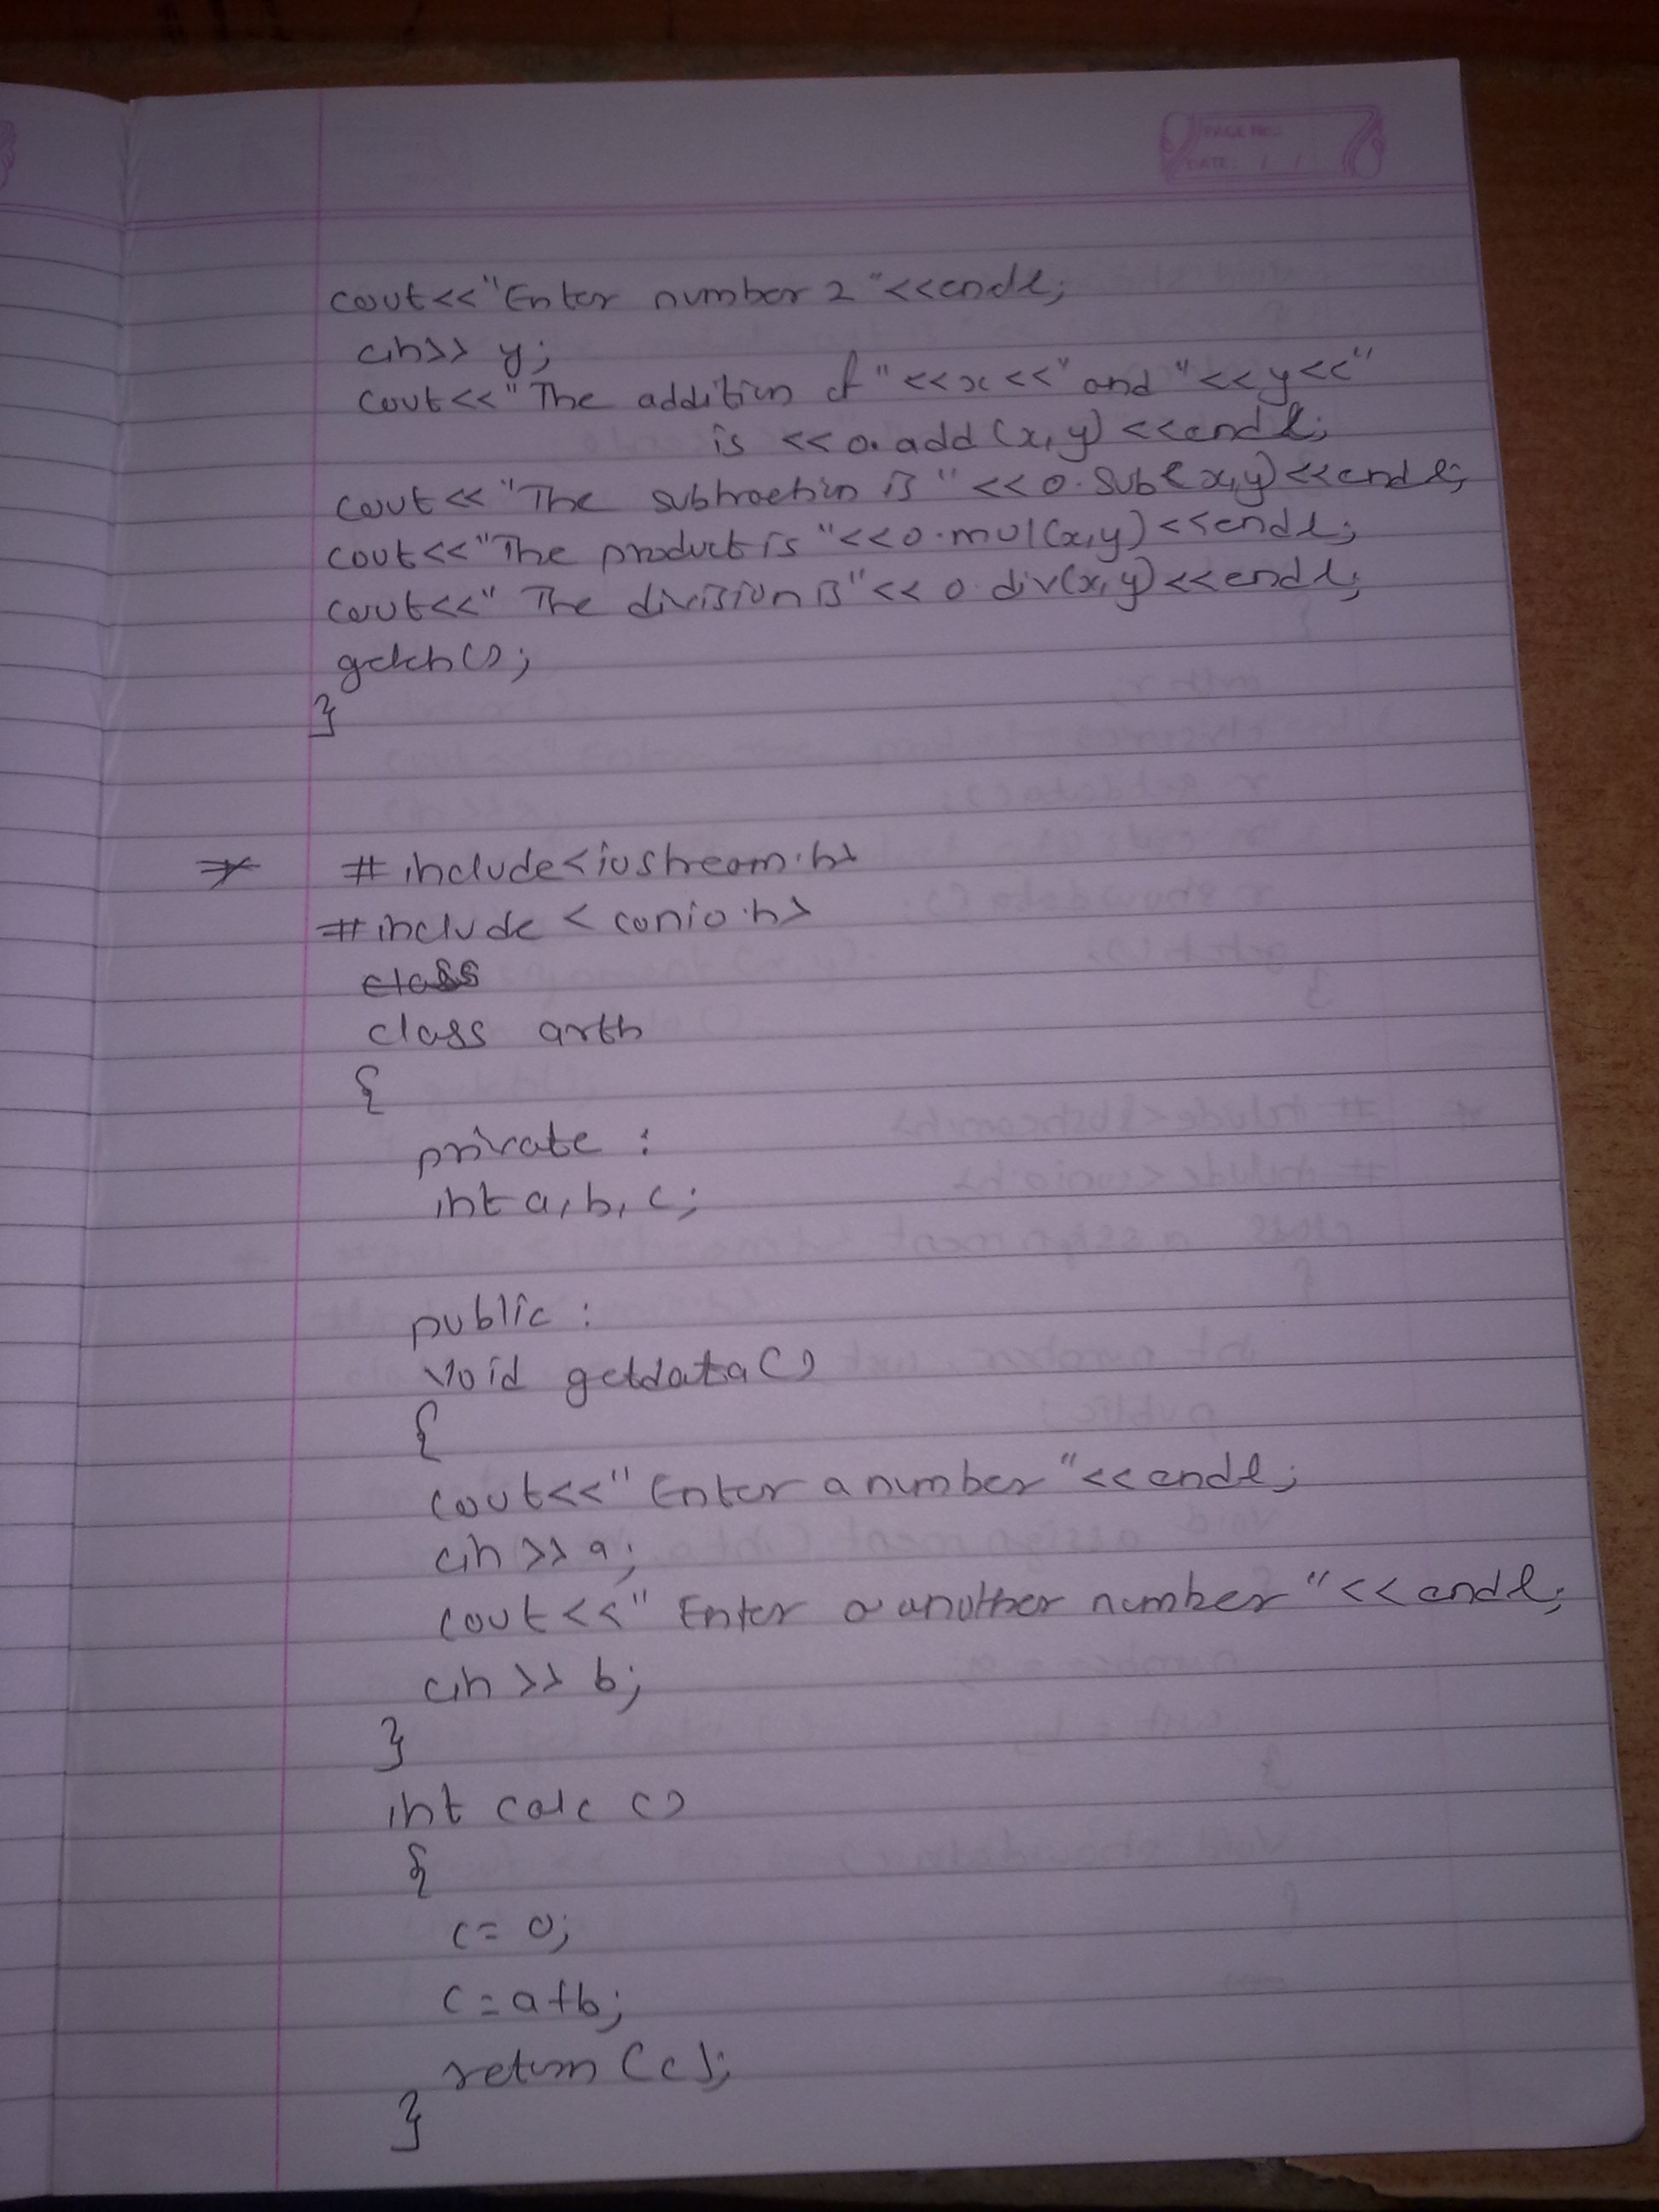 PAGE NO.:
DATE: / /
cout<<"Enter number 2 "<<endl;
cin>> y;
cout<<"The addition of "<<x<<" and "<<y<<"
is <<o.add(x,y)<<endl;
cout<<"The subtraction is "<<o.sub(x,y)<<endl;
cout<<"The product is "<<o.mul(x,y)<<endl;
cout<<" The division is"<< o.div(x,y)<<endl;
getch();
}
* #include<iostream.h>
#include < conio.h>
class
class arth
{
private :
int a, b, c;
public :
void getdata()
{
cout<<" Enter a number "<<endl;
cin >> a;
cout<<" Enter a another number "<<endl;
cin >> b;
}
int calc ()
{
c= 0;
c=a+b;
return (c);
}